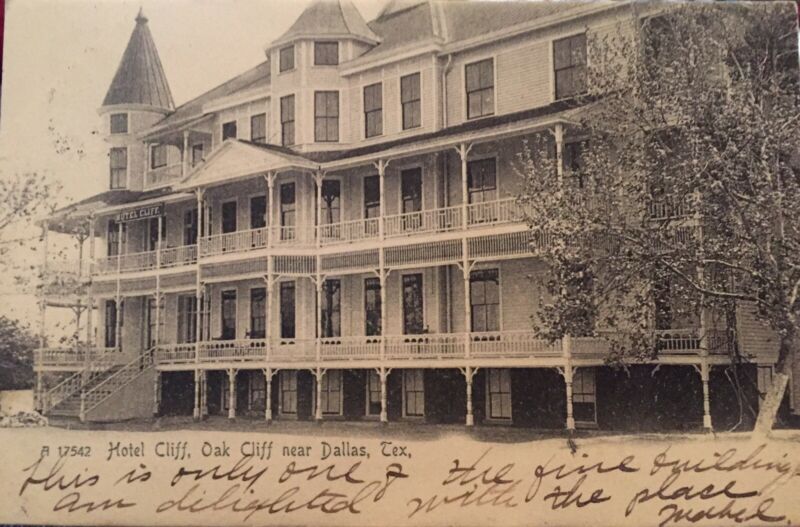 HOTEL CLIFF
A 17542 Hotel Cliff, Oak Cliff near Dallas, Tex,
This is only one of the fine buildings
am delighted with the place
Mabel.